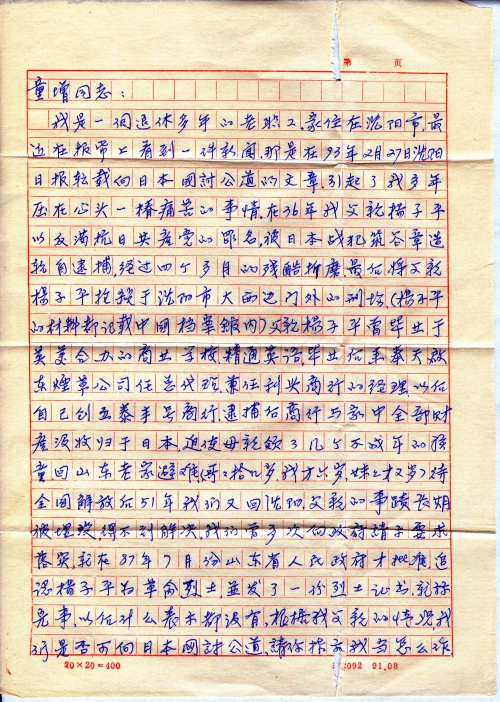 第 页
童增同志：
我是一個退休多年的老职工，家住在沈阳市，最
近在报帋上看到一件新闻，那是在93年2月27日沈阳
日报转载向日本國討公道的文章，引起了我多年
压在心头一樁痛苦的事情，在36年我父親楊子平
以反满抗日共産党的罪名，被日本战犯筑谷章造
親自逮捕，经过四个多月的残酷折磨最后将父親
楊子平抢殺于沈阳市大西边门外的刑场，(楊子平
的材料都记载中國档案舘内)父親楊子平曾毕业于
英美合办的商业学校，精通英语，毕业后来奉天啟
东煙草公司任总代理，兼任利兴商行的经理，以后
自己创立泰丰号商行，逮捕后商行与家中全部财
産没收归于日本，迫使母親领了几个不成年的孩
童回山东老家避难(哥哥拾几岁，我才六岁，妹妹才2岁)待
全國解放后51年我们又回沈阳，父親的事蹟长期
被埋没得不到解决，我们曾多次向政府請示要求
落实，就在87年7月份山东省人民政府才批准，追
认楊子平为革命烈士，並发了一份烈士证书，就称
完事，以后什么表示都没有，根据我父親的情况我
们是否可向日本國討公道，請你指示我当怎么作
20×20=400
2092 91.08